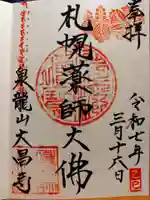 奉拝
令和七年
三月十六日
札幌薬師大佛
泉龍山大昌寺